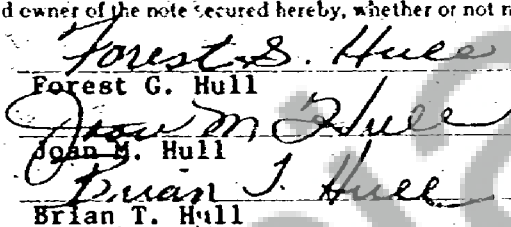 d owner of the note secured hereby, whether or not n
Forest G. Hull
Forest G. Hull
Joan M Hull
Joan M. Hull
Brian T. Hull
Brian T. Hull